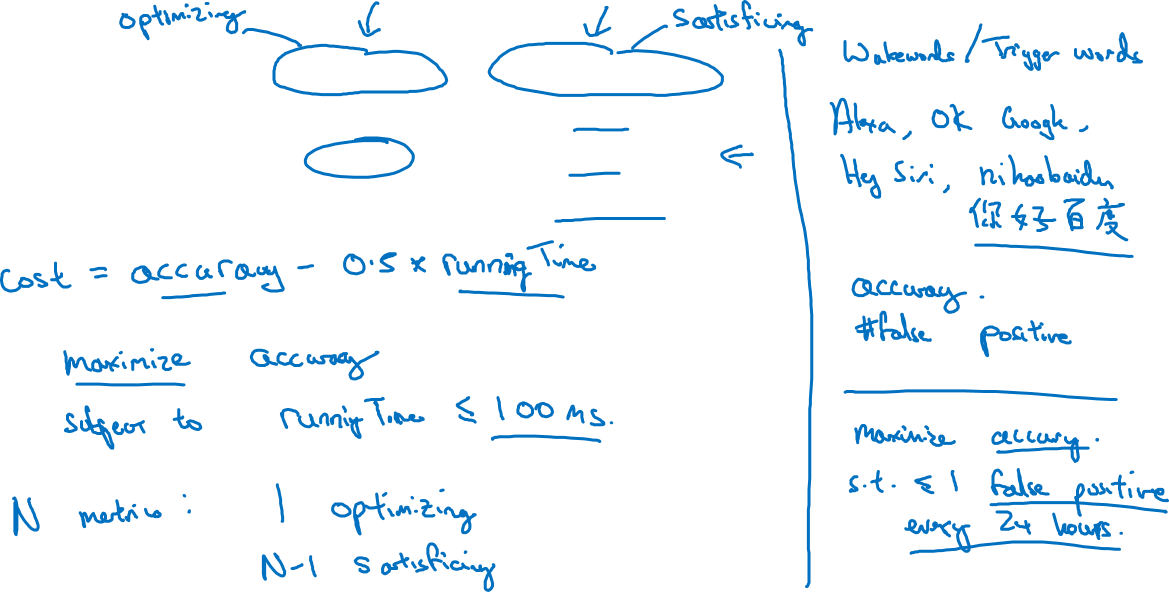 optimizing
satisficing
cost = accuracy - 0.5 x running Time
maximize accuracy
subject to running Time ≤ 100 ms.
N metrics: 1 optimizing
N-1 satisficing
Wakewords / Trigger words
Alexa, OK Google,
Hey Siri, nihaobaidu
你好百度
accuracy.
#false positive
maximize accuracy.
s.t. ≤ 1 false positive
every 24 hours.